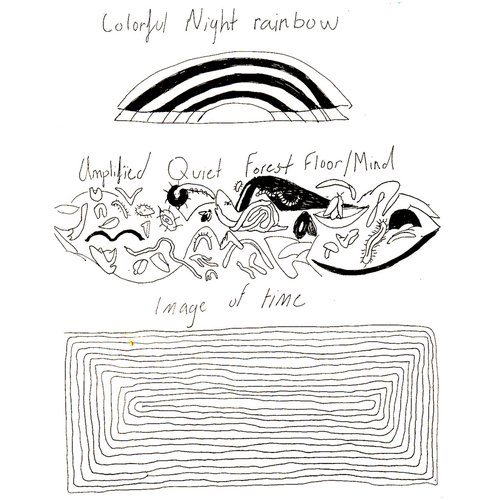 Colorful Night rainbow
Amplified Quiet Forest Floor/Mind
Image of time